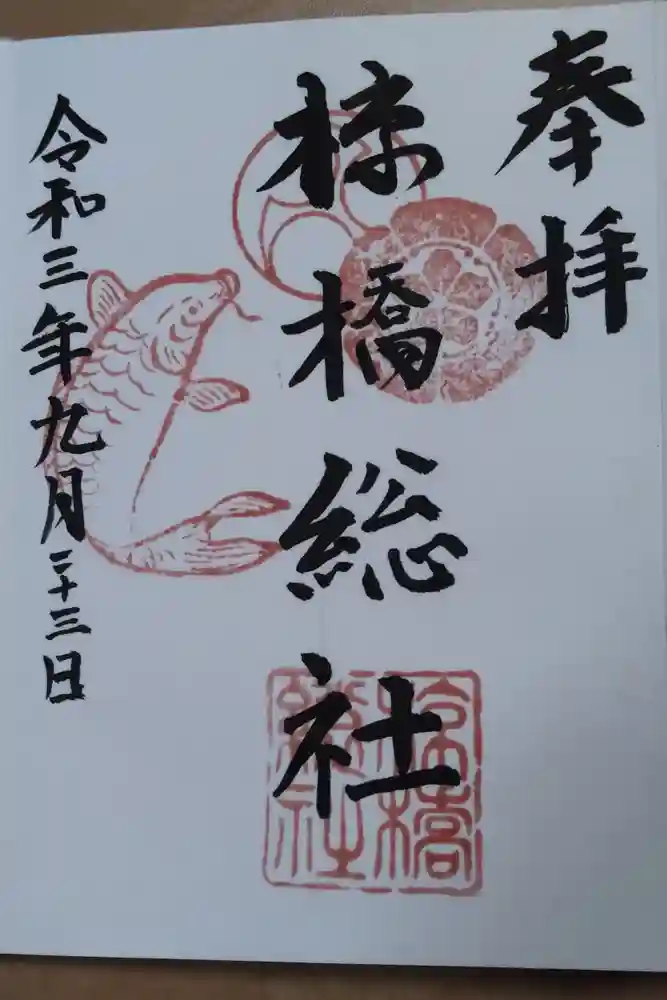 奉拝
椋橋総社
令和三年九月二十三日
椋橋
総社